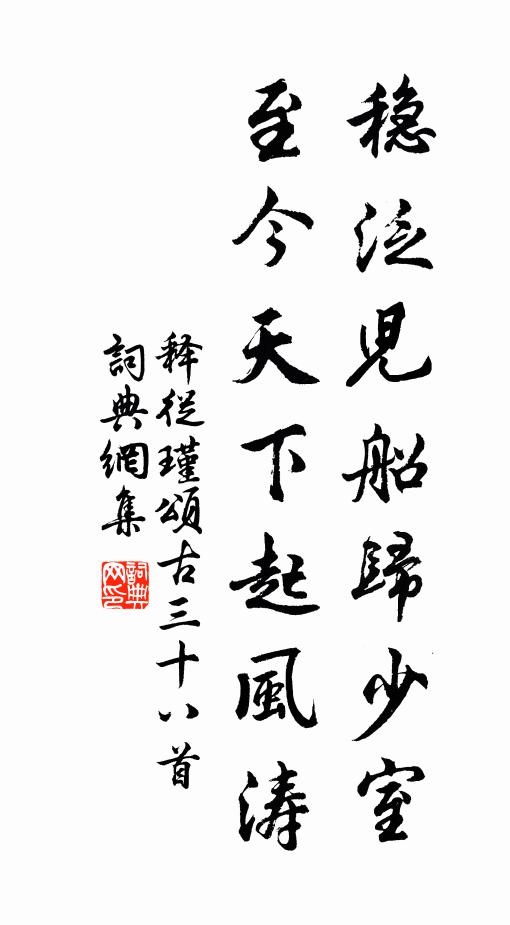 穏泛児船歸少室
至今天下起風涛
释從瑾頌古三十八首
詞典網集
詞典网印